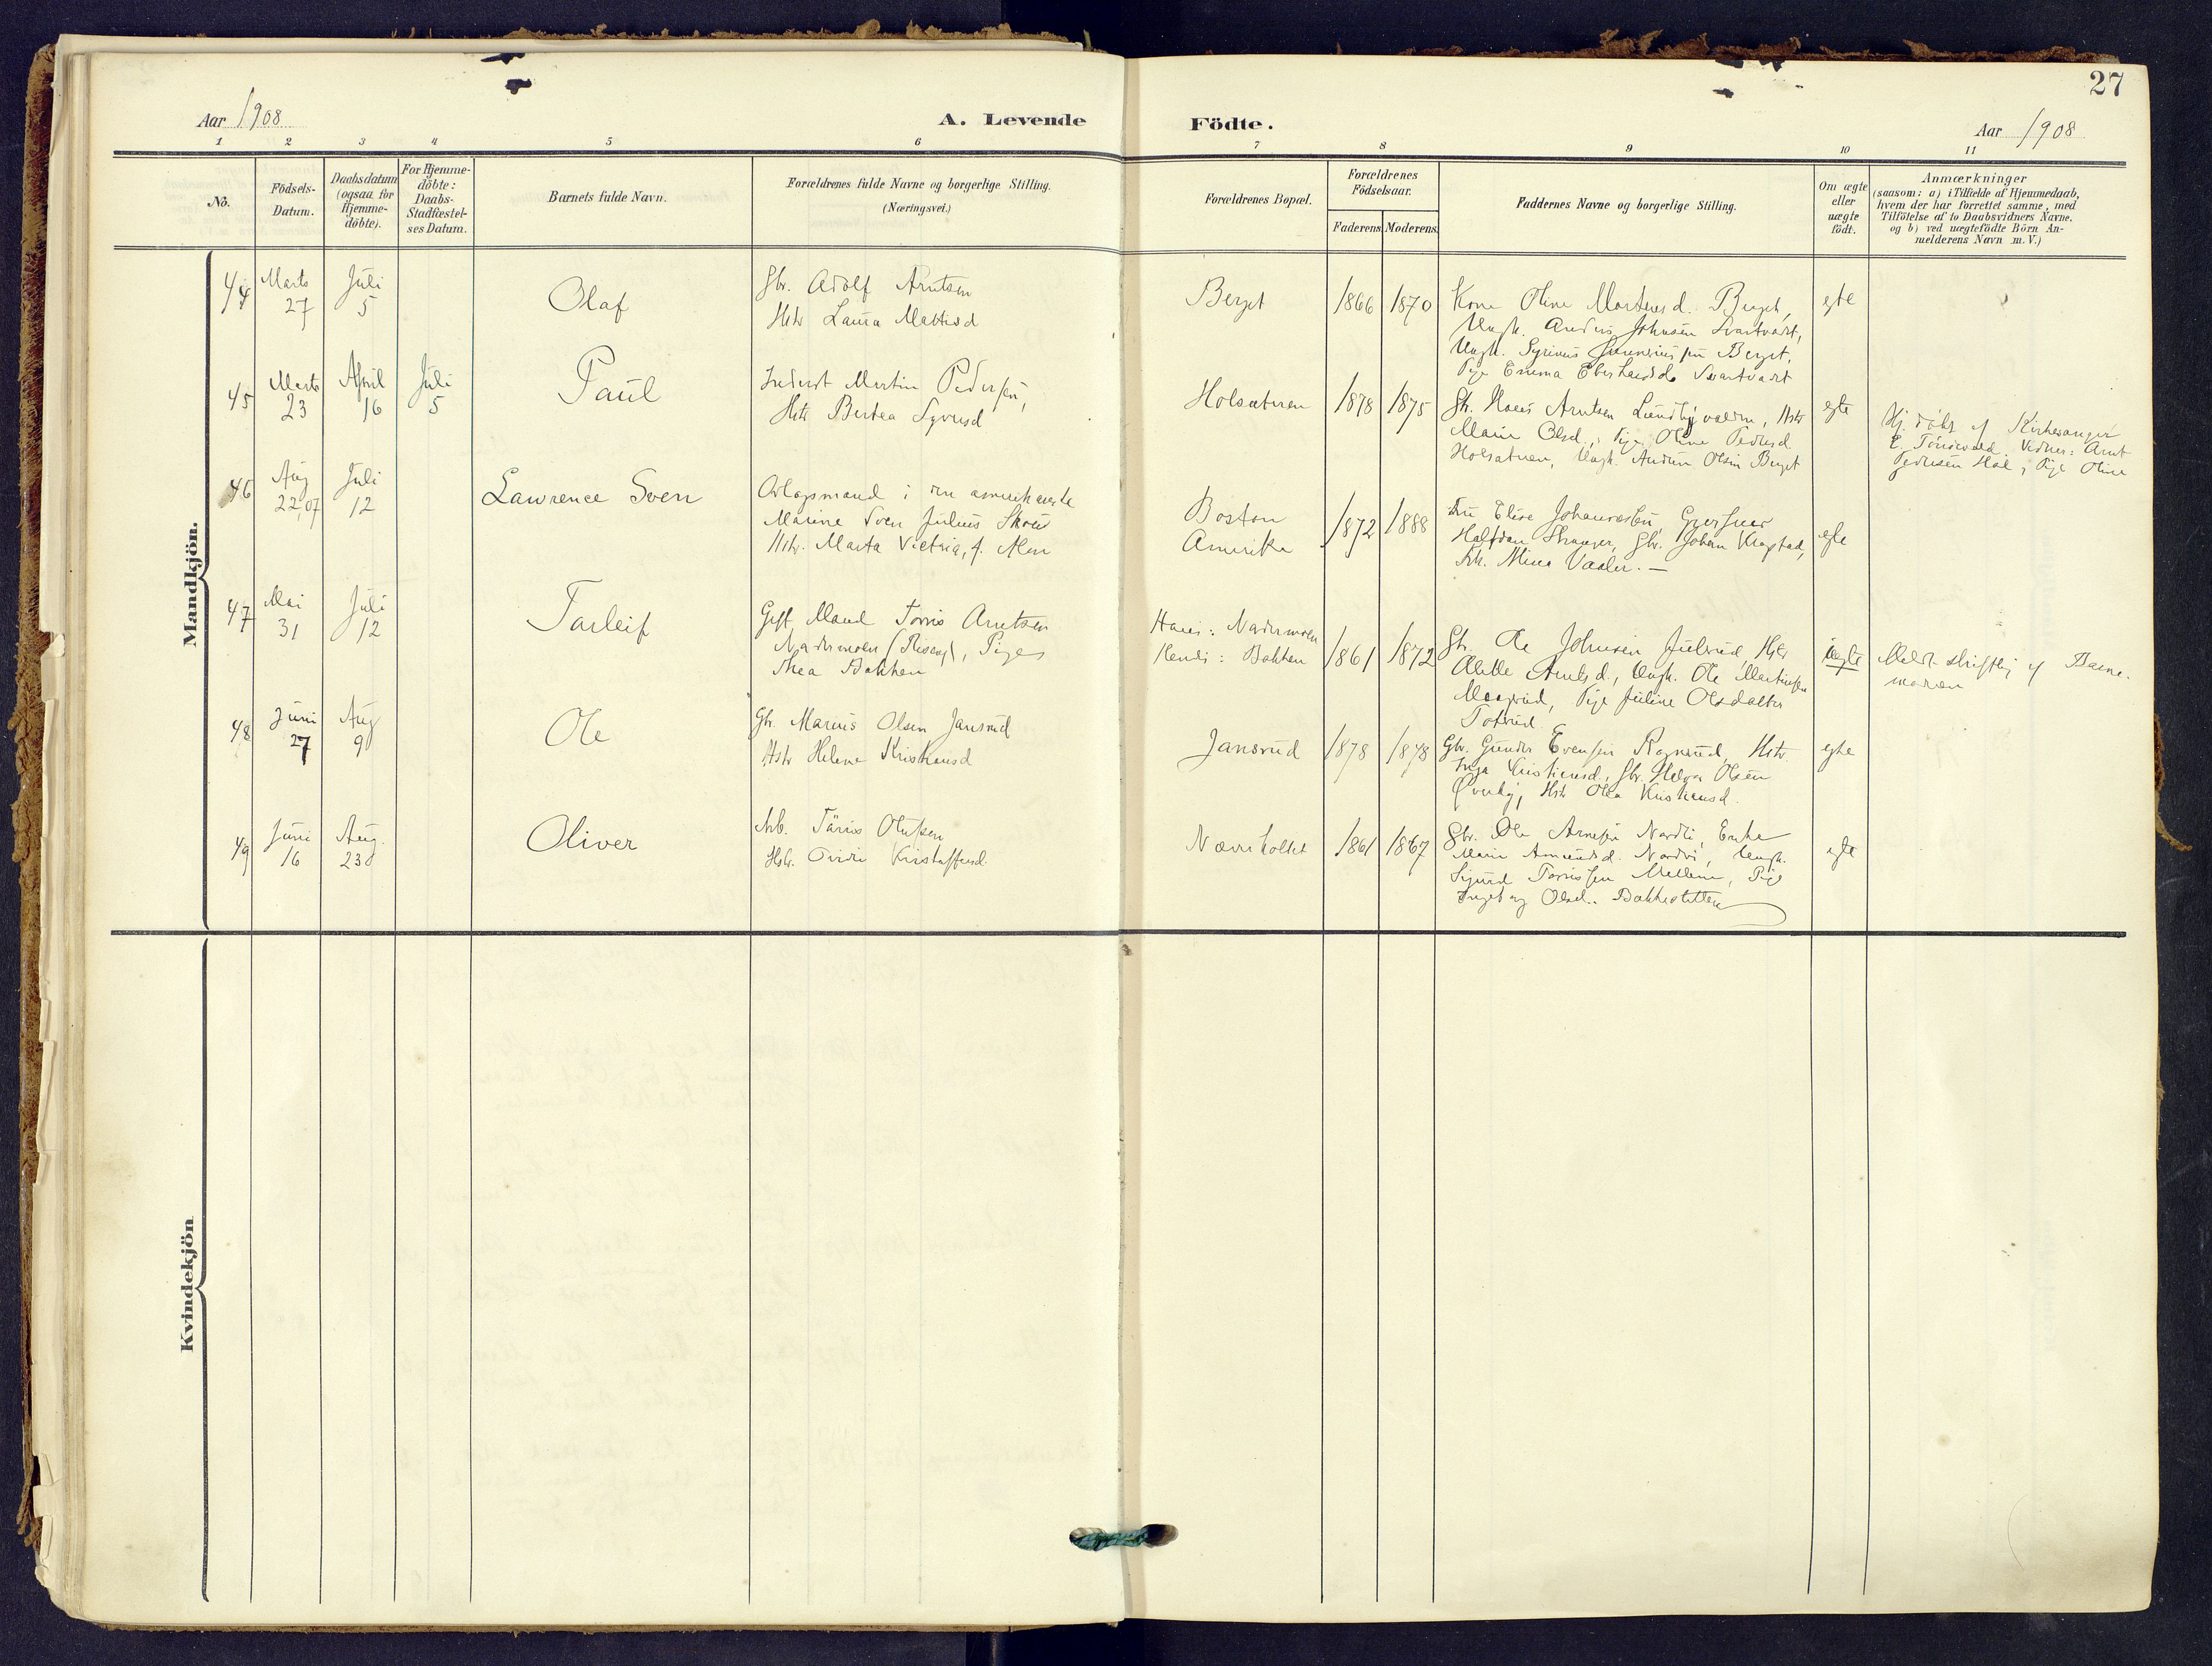 27
Aar 1908
A. Levende
Födte.
Aar 1908
1 2 3 4 5 6 7 8 9 10 11
No.
Födsels-
Datum.
Daabsdatum
(ogsaa for
Hjemme-
döbte).
For Hjemme-
döbte:
Daabs-
Stadfæstel-
ses Datum.
Barnets fulde Navn.
Forældrenes fulde Navne og borgerlige Stilling.
(Næringsvei.)
Forældrenes Bopæl.
Forældrenes
Födselsaar.
Faderens
Moderens
Faddernes Navne og borgerlige Stilling.
Om ægte
eller
uægte
födt.
Anmærkninger
(saasom: a) i Tilfælde af Hjemmedaab,
hvem der har forrettet samme, med
Tilföielse af to Daabsvidners Navne.
og b) ved uægtefödte Börn An-
melderens Navn m. V.)
Mandkjön.
44
Marts
27
Juli
5
Olaf
Gbr. Adolf Arntsen
Hstr Laura Mattisd
Berget
1866
1870
Kone Oline Martinsd. Berget,
Ungk. Anders Johnsen Svartvadet,
Ungk. Syrinus Berget,
Pige Emma Svartvadet
egte
45
Marts
23
April
16
Juli
5
Paul
Inderst Martin Pedersen,
Hstr Bertea Syversd
Holsæteren
1878
1875
Gbr. Hans Arntsen Hstr
Marie Olsd., Pige Oline Pedersd
Holsæteren, Ungk. Olsen Berget
egte
Hj. døbt af Kirkesanger
E. Vidner: Arnt
Pedersen Hol, Pige Oline
46
Aug
22,07
Juli
12
Lawrence Sven
Orlogsmand i den amerikanske
Marine Sven Julius
Hstr. Marta Victoria, f.
Boston
Amerika
1872
1888
Fru Elise Johannessen,
Halfdan Gbr. Johan
Frk. Mina Vaaler. —
egte
47
Mai
31
Juli
12
Tarleif
Gift Mand Torris Arntsen
Nadermoen Pige
Thea Bakken
Hans: Nadermoen
Hendes: Bakken
1861
1872
Gbr. Ole Johnsen Julsrud, Hstr
Arntsd, Ungk. Ole Martinsen
Pige Juline Olsdatter
uegte
Meldt skriftlig af Barne-
moderen
48
Juni
27
Aug
9
Ole
Gbr. Marius Olsen Jansrud
Hstr Helene Kristiansd
Jansrud
1878
1878
Gbr. Gunder Evensen Hstr.
Inga Kristiansd., Gbr. Helge Olsen
Øverby, Hstr Olea Kristiansd.
egte
49
Juni
16
Aug.
23
Oliver
Arb. Olufsen
Hstr. Kristoffersd.
Næverholtet
1861
1867
Gbr. Ole Arnesen Enke
Marie Amundsd. Ungk.
Sigurd Torrissen Mellem, Pige
Ingeborg Olsd.. Bakkestellen
egte
Kvindekjön